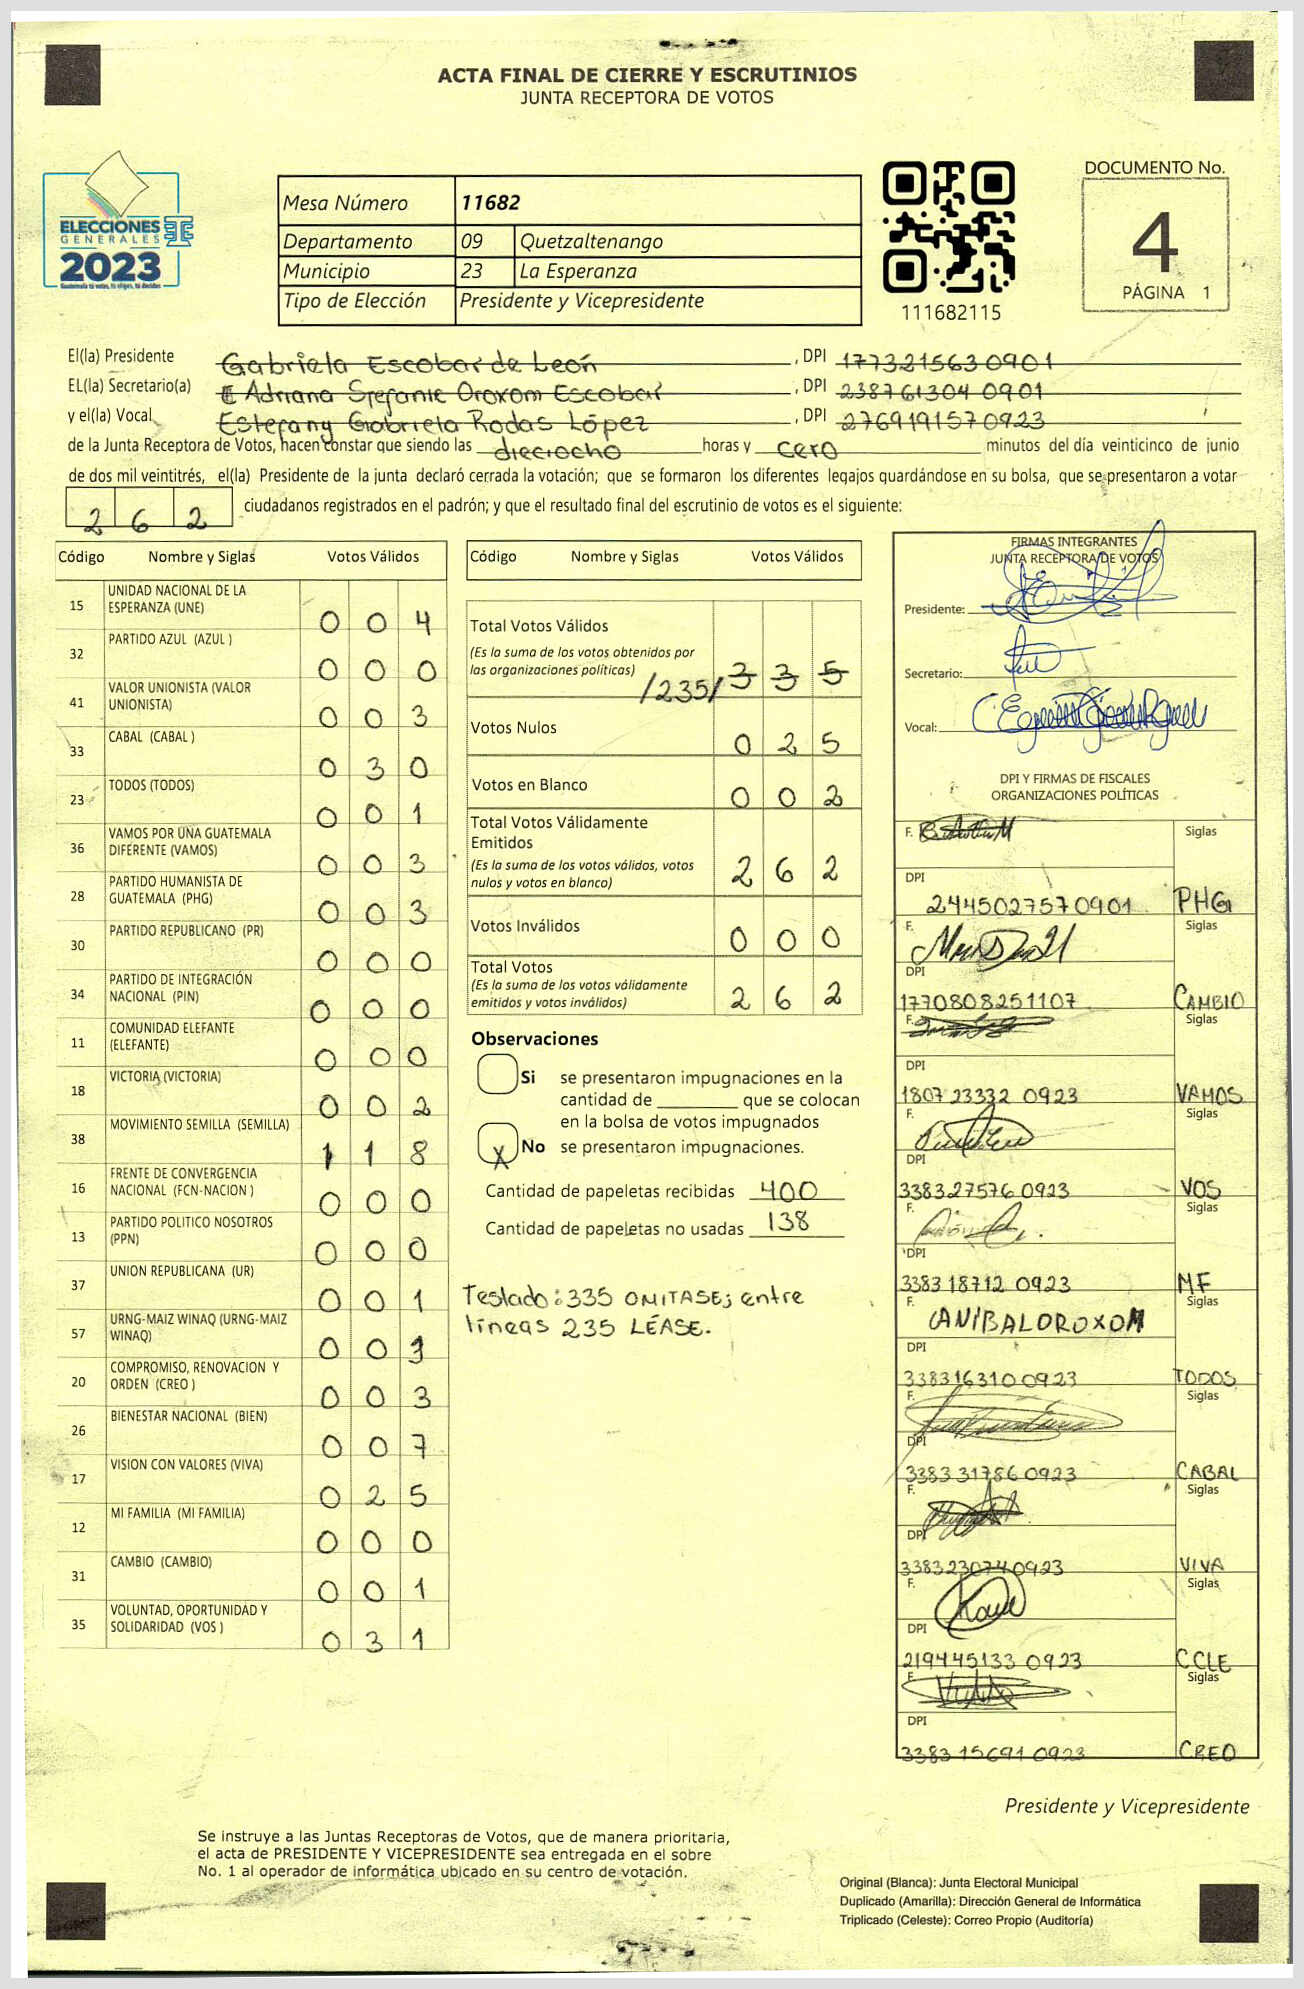 ACTA FINAL DE CIERRE Y ESCRUTINIOS
JUNTA RECEPTORA DE VOTOS
ELECCIONES
GENERALES
2023
Guatemala tú votas, tú eliges, tú decides
Mesa Número 11682
Departamento 09 Quetzaltenango
Municipio 23 La Esperanza
Tipo de Elección Presidente y Vicepresidente
111682115
DOCUMENTO No.
4
PÁGINA 1
El(la) Presidente Gabriela Escobar de León, DPI 1773215630901
EL(la) Secretario(a) Adriana Stefanie Oroxom Escobar, DPI 238761304 0901
y el(la) Vocal Estefany Gabriela Rodas López, DPI 2769191570923
de la Junta Receptora de Votos, hacen constar que siendo las dieciocho horas y cero minutos del día veinticinco de junio
de dos mil veintitrés, el(la) Presidente de la junta declaró cerrada la votación; que se formaron los diferentes legajos quardándose en su bolsa, que se presentaron a votar
262 ciudadanos registrados en el padrón; y que el resultado final del escrutinio de votos es el siguiente:
Código Nombre y Siglas Votos Válidos
15 UNIDAD NACIONAL DE LA ESPERANZA (UNE) 0 0 4
32 PARTIDO AZUL (AZUL ) 0 0 0
41 VALOR UNIONISTA (VALOR UNIONISTA) 0 0 3
33 CABAL (CABAL ) 0 3 0
23 TODOS (TODOS) 0 0 1
36 VAMOS POR UNA GUATEMALA DIFERENTE (VAMOS) 0 0 3
28 PARTIDO HUMANISTA DE GUATEMALA (PHG) 0 0 3
30 PARTIDO REPUBLICANO (PR) 0 0 0
34 PARTIDO DE INTEGRACIÓN NACIONAL (PIN) 0 0 0
11 COMUNIDAD ELEFANTE (ELEFANTE) 0 0 0
18 VICTORIA (VICTORIA) 0 0 2
38 MOVIMIENTO SEMILLA (SEMILLA) 1 1 8
16 FRENTE DE CONVERGENCIA NACIONAL (FCN-NACION ) 0 0 0
13 PARTIDO POLITICO NOSOTROS (PPN) 0 0 0
37 UNION REPUBLICANA (UR) 0 0 1
57 URNG-MAIZ WINAQ (URNG-MAIZ WINAQ) 0 0 3
20 COMPROMISO, RENOVACION Y ORDEN (CREO ) 0 0 3
26 BIENESTAR NACIONAL (BIEN) 0 0 7
17 VISION CON VALORES (VIVA) 0 2 5
12 MI FAMILIA (MI FAMILIA) 0 0 0
31 CAMBIO (CAMBIO) 0 0 1
35 VOLUNTAD, OPORTUNIDAD Y SOLIDARIDAD (VOS ) 0 3 1
Código Nombre y Siglas Votos Válidos
Total Votos Válidos
(Es la suma de los votos obtenidos por
las organizaciones políticas) /235/ 3 3 5
Votos Nulos 0 2 5
Votos en Blanco 0 0 2
Total Votos Válidamente
Emitidos
(Es la suma de los votos válidos, votos
nulos y votos en blanco) 2 6 2
Votos Inválidos 0 0 0
Total Votos
(Es la suma de los votos válidamente
emitidos y votos inválidos) 2 6 2
Observaciones
Si se presentaron impugnaciones en la
cantidad de ________ que se colocan
en la bolsa de votos impugnados
X No se presentaron impugnaciones.
Cantidad de papeletas recibidas 400
Cantidad de papeletas no usadas 138
Testado: 335 OMITASE; entre
líneas 235 LÉASE.
FIRMAS INTEGRANTES
JUNTA RECEPTORA DE VOTOS
Presidente:
Secretario:
Vocal:
DPI Y FIRMAS DE FISCALES
ORGANIZACIONES POLÍTICAS
F. Siglas
DPI
2445027570901 PHG
F. Siglas
DPI
1770808251107 CAMBIO
F. Siglas
DPI
1807 23332 0923 VAMOS
F. Siglas
DPI
338327576 0923 VOS
F. Siglas
DPI
3383 18712 0923 MF
F. ANIBAL OROXOM Siglas
DPI
3383163100923 TODOS
F. Siglas
DPI
3383 31786 0923 CABAL
F. Siglas
DPI
3383230740923 VIVA
F. Siglas
DPI
219445133 0923 CCLE
F. Siglas
DPI
3383 15691 0923 CREO
Presidente y Vicepresidente
Se instruye a las Juntas Receptoras de Votos, que de manera prioritaria,
el acta de PRESIDENTE Y VICEPRESIDENTE sea entregada en el sobre
No. 1 al operador de informática ubicado en su centro de votación.
Original (Blanca): Junta Electoral Municipal
Duplicado (Amarilla): Dirección General de Informática
Triplicado (Celeste): Correo Propio (Auditoría)